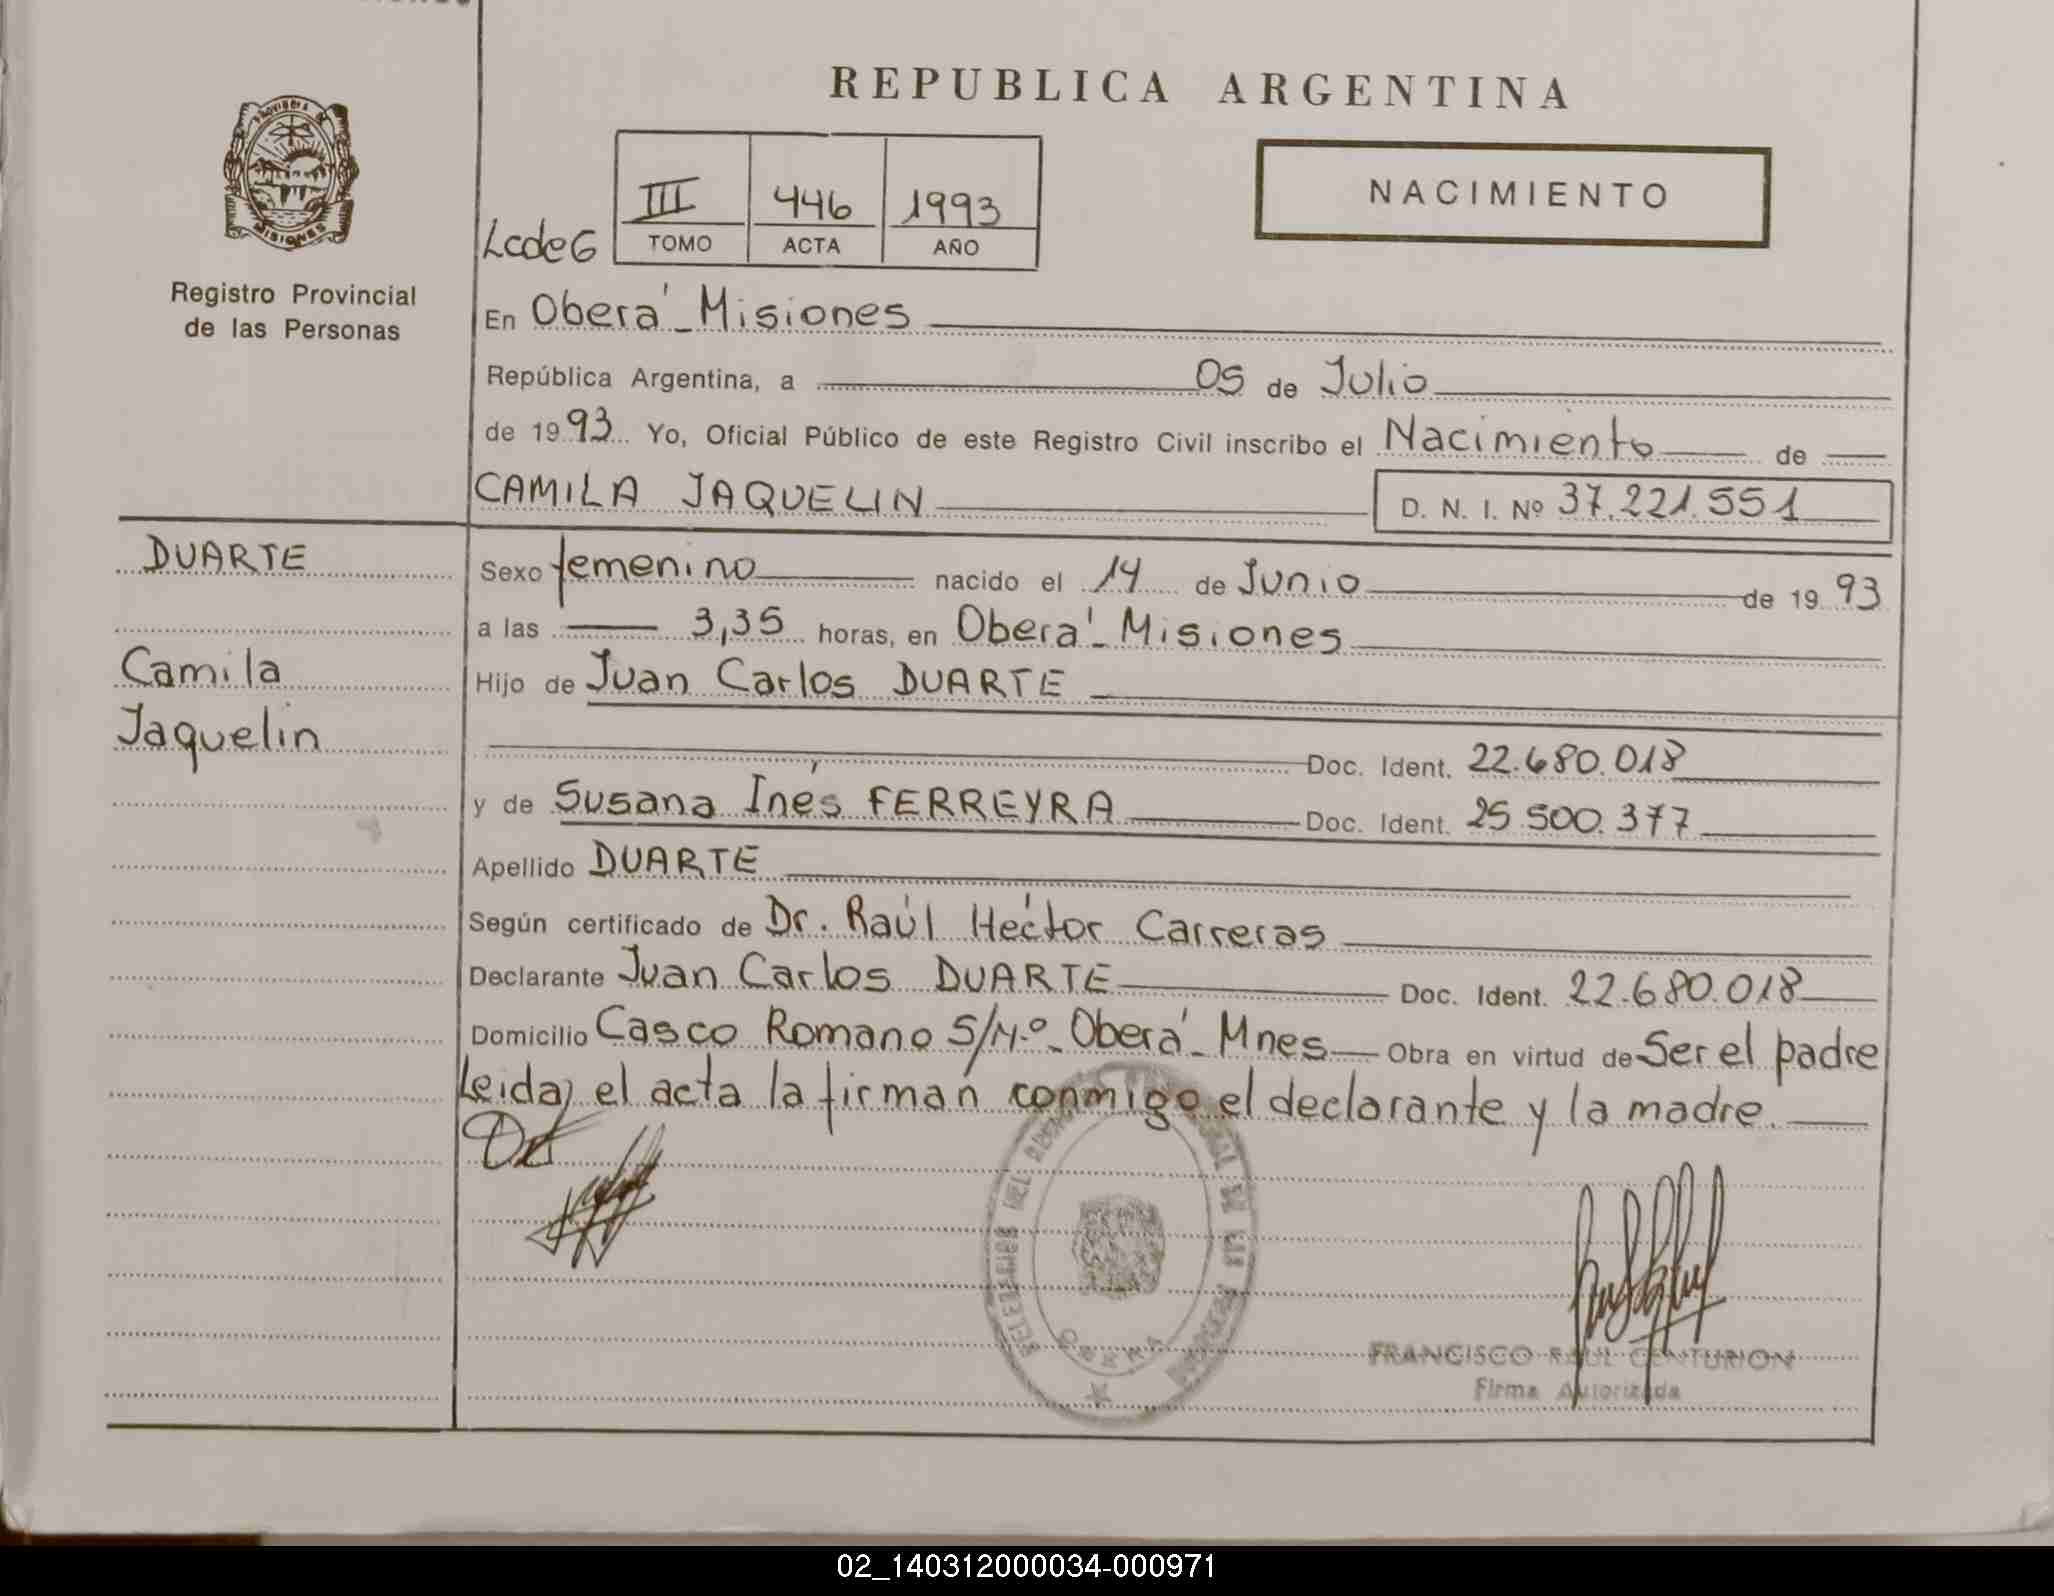 REPUBLICA ARGENTINA
PROVINCIA
MISIONES
Registro Provincial
de las Personas
LcdeG
III 446 1993
TOMO ACTA AÑO
NACIMIENTO
En Oberá - Misiones
República Argentina, a 05 de Julio
de 1993 Yo, Oficial Público de este Registro Civil inscribo el Nacimiento de
CAMILA JAQUELIN D. N. I. Nº 37.221.551
DUARTE
Camila
Jaquelin
Sexo femenino nacido el 14 de Junio de 1993
a las 3,35 horas, en Oberá - Misiones
Hijo de Juan Carlos DUARTE
Doc. Ident. 22.680.018
y de Susana Inés FERREYRA Doc. Ident. 25.500.377
Apellido DUARTE
Según certificado de Dr. Raúl Héctor Carreras
Declarante Juan Carlos DUARTE Doc. Ident. 22.680.018
Domicilio Casco Romano S/N.º - Oberá - Mnes Obra en virtud de Ser el padre
Leida, el acta la firman conmigo el declarante y la madre.
OBERA
FRANCISCO RAUL CENTURION
Firma Autorizada
02_140312000034-000971